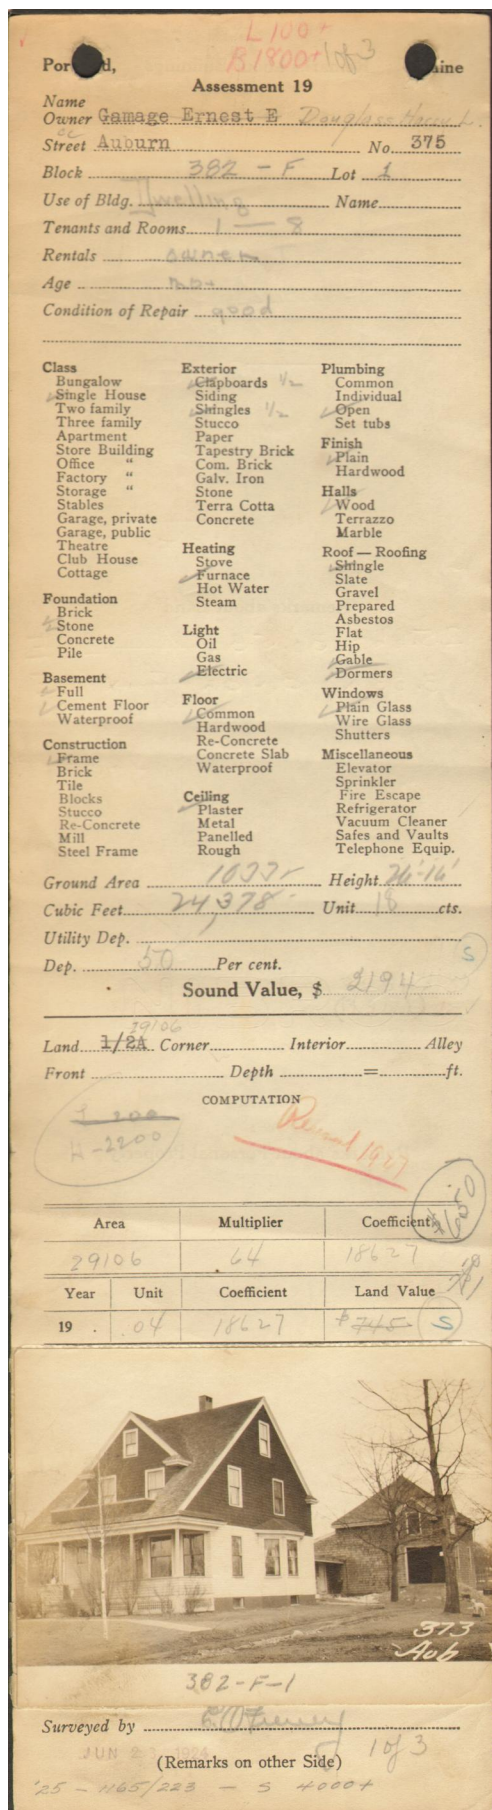 L 100+
B 1800+ 1 of 3
Portland, Maine
Assessment 19
Name
Owner Gamage Ernest E Douglass Harry L.
Street Auburn No. 375
Block 382 - F Lot 1
Use of Bldg. Dwelling Name
Tenants and Rooms 1 - 8
Rentals owner
Age
Condition of Repair good
Class
Bungalow
Single House
Two family
Three family
Apartment
Store Building
Office "
Factory "
Storage "
Stables
Garage, private
Garage, public
Theatre
Club House
Cottage
Foundation
Brick
Stone
Concrete
Pile
Basement
Full
Cement Floor
Waterproof
Construction
Frame
Brick
Tile
Blocks
Stucco
Re-Concrete
Mill
Steel Frame
Exterior
Clapboards 1/2
Siding
Shingles 1/2
Stucco
Paper
Tapestry Brick
Com. Brick
Galv. Iron
Stone
Terra Cotta
Concrete
Heating
Stove
Furnace
Hot Water
Steam
Light
Oil
Gas
Electric
Floor
Common
Hardwood
Re-Concrete
Concrete Slab
Waterproof
Ceiling
Plaster
Metal
Panelled
Rough
Plumbing
Common
Individual
Open
Set tubs
Finish
Plain
Hardwood
Halls
Wood
Terrazzo
Marble
Roof — Roofing
Shingle
Slate
Gravel
Prepared
Asbestos
Flat
Hip
Gable
Dormers
Windows
Plain Glass
Wire Glass
Shutters
Miscellaneous
Elevator
Sprinkler
Fire Escape
Refrigerator
Vacuum Cleaner
Safes and Vaults
Telephone Equip.
Ground Area Height
Cubic Feet 24,378 Unit 18 cts.
Utility Dep.
S
Dep. 50 Per cent.
Sound Value, $ 2194
29106
Land 1/2A Corner Interior Alley
Front Depth = ft.
COMPUTATION
L 200
H-2200
1927
$650
Area Multiplier Coefficient
29106 .64 18627
Year Unit Coefficient Land Value
19 .04 18627 $745 S
373
Aub
382-F-1
Surveyed by
JUN 1924
(Remarks on other Side) 1 of 3
'25 - 1165/223 - S 4000+